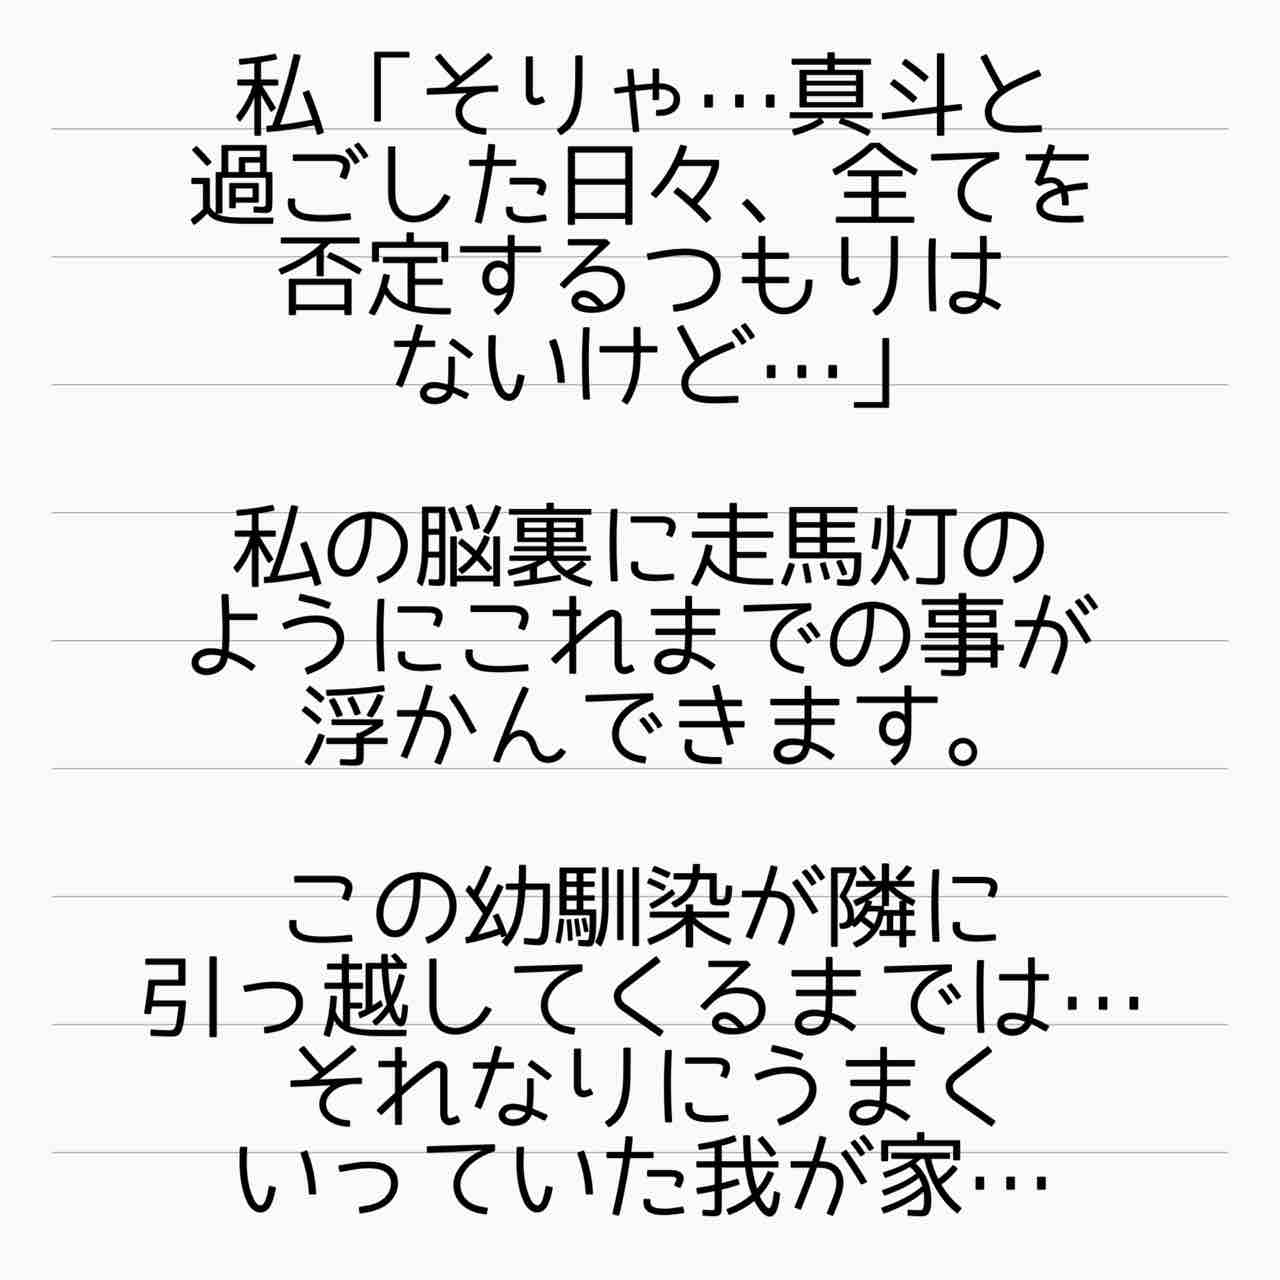 私「そりゃ…真斗と
過ごした日々、全てを
否定するつもりは
ないけど…」
私の脳裏に走馬灯の
ようにこれまでの事が
浮かんできます。
この幼馴染が隣に
引っ越してくるまでは…
それなりにうまく
いっていた我が家…